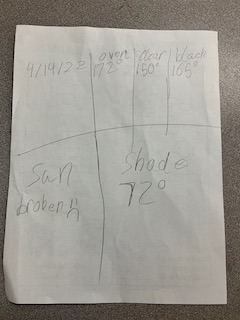 oven clear black
4/14/22 172° 150° 165°
Sun
broken :(
Shade
72°